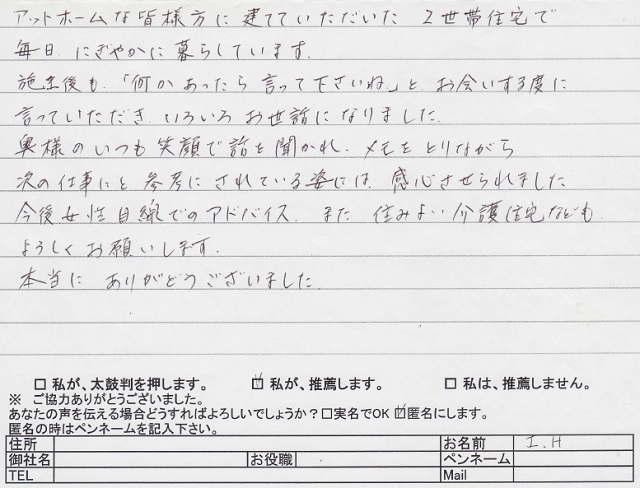 アットホームな皆様方に建てていただいた 2世帯住宅で
毎日 にぎやかに暮らしています.
施主後も.「何かあったら言って下さいね.」と お会いする度に
言っていただき. いろいろお世話になりました.
奥様のいつも笑顔で話を聞かれ. メモをとりながら
次の仕事にと 参考に されている姿には 感心させられました
今後女性目線でのアドバイス. また 住みよい介護住宅なども.
よろしくお願いします.
本当に ありがとうございました.
□ 私が、太鼓判を押します。 ☑ 私が、推薦します。 □ 私は、推薦しません。
※ ご協力ありがとうございました。
あなたの声を伝える場合どうすればよろしいでしょうか?□実名でOK ☑匿名にします。
匿名の時はペンネームを記入下さい。
住所 お名前 I.H
御社名 お役職 ペンネーム
TEL Mail